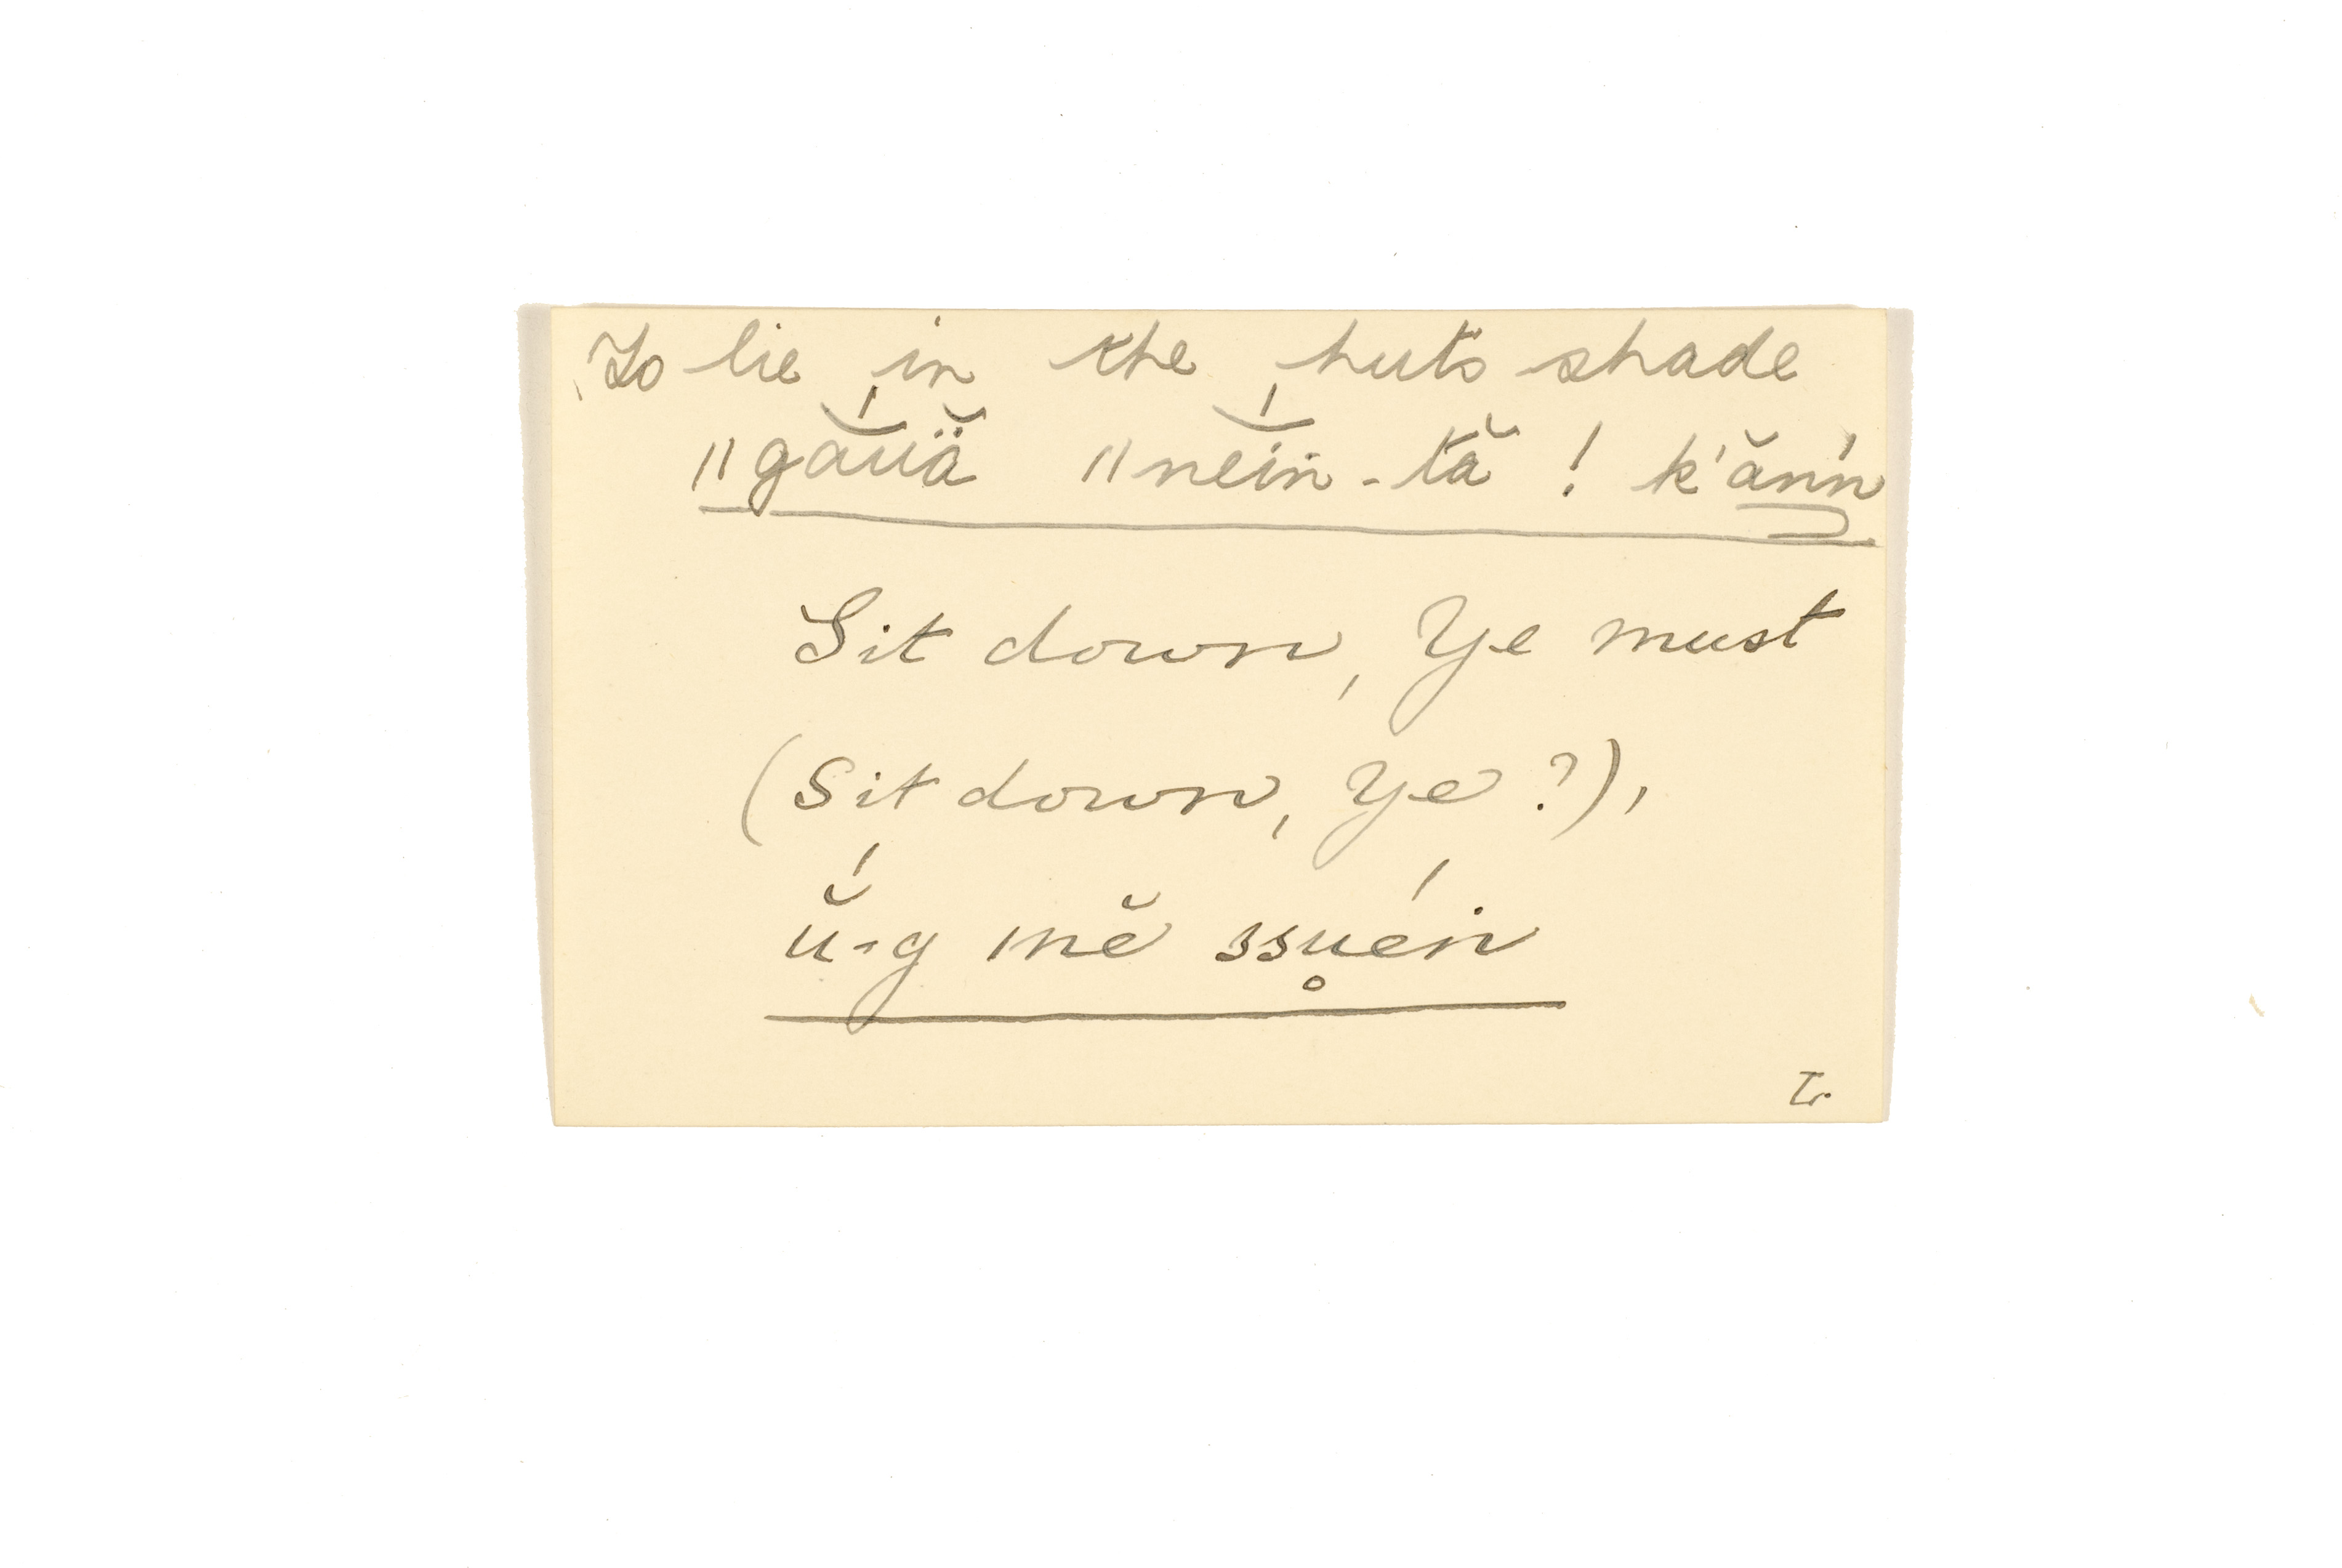 To lie in the huts shade
ǁgauä̆ ǁnein-tă ! k'ănń
Sit down, Ye must
(Sit down, Ye ?),
ŭ́-g ıně ssu̥én
L.